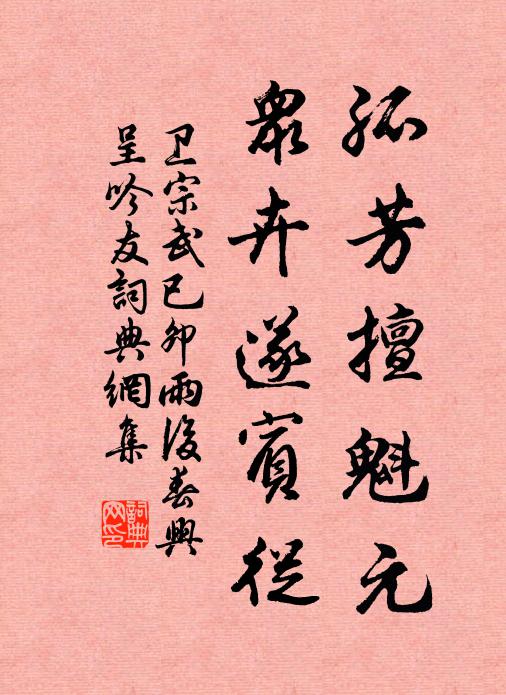 孤芳擅魁元
眾卉遂賓從
卫宗武己卯雨後春興
呈吟友詞典網集
詞典網印